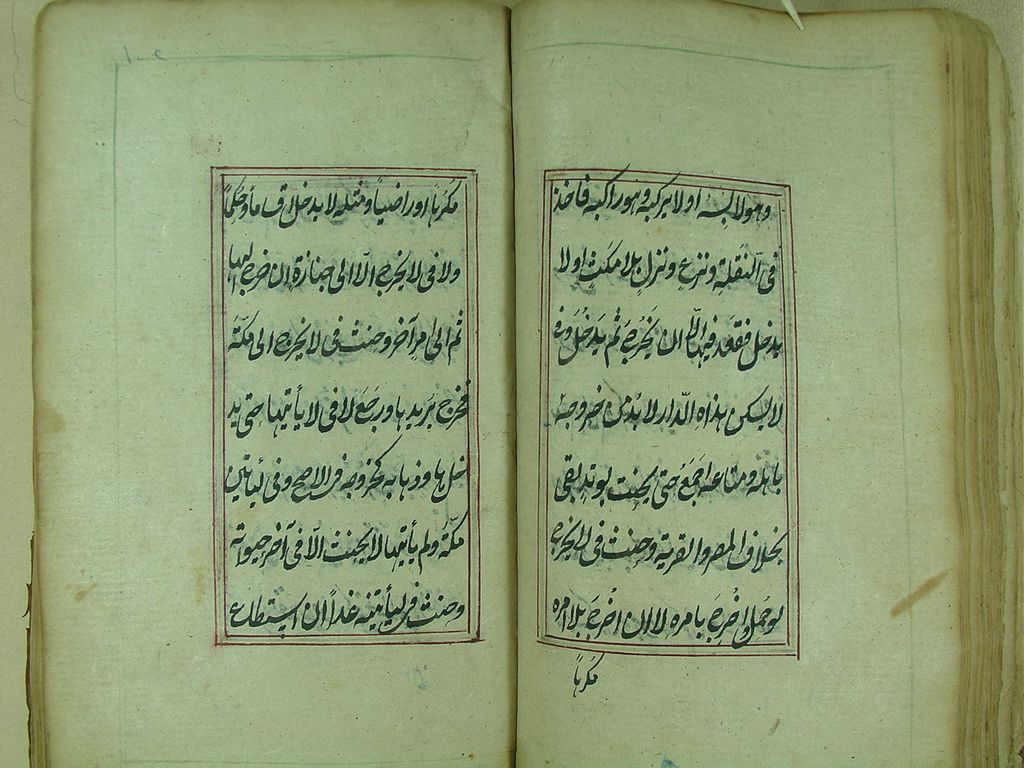 وهو لابسه او لا يركبه وهو راكبه فاخذ
فى النقلة ونزع ونزل بلا مكث او لا
يدخل فقعد فيها الا ان يَخْرُجَ ثم يَدْخُلَ وفى
لا يسكن هذه الدار لا بد من خروجه
باهله ومتاعه اجمع حتى يحنث بوتد بقى
بخلاف المصر والقرية وحنث فى لا يخرج
لو حمل واخرج بامره لا ان اخرج بلا امره
مكرها
١٠٤
مكرها او راضيا ومثله لا يدخل اقساما وحكما
ولا فى لا يخرج الا الى جنازة ان خرج اليها
ثم الى امر آخر وحنث فى لا يخرج الى مكة
فخرج يريدها ورجع لا فى لا يأتيها حتى يد
خلها وذهابه كخروجه فى الاصح وفى ليأتين
مكة ولم يأتها لا يحنث الا فى آخر حيوته
وحنث فى ليأتينه غدا ان استطاع